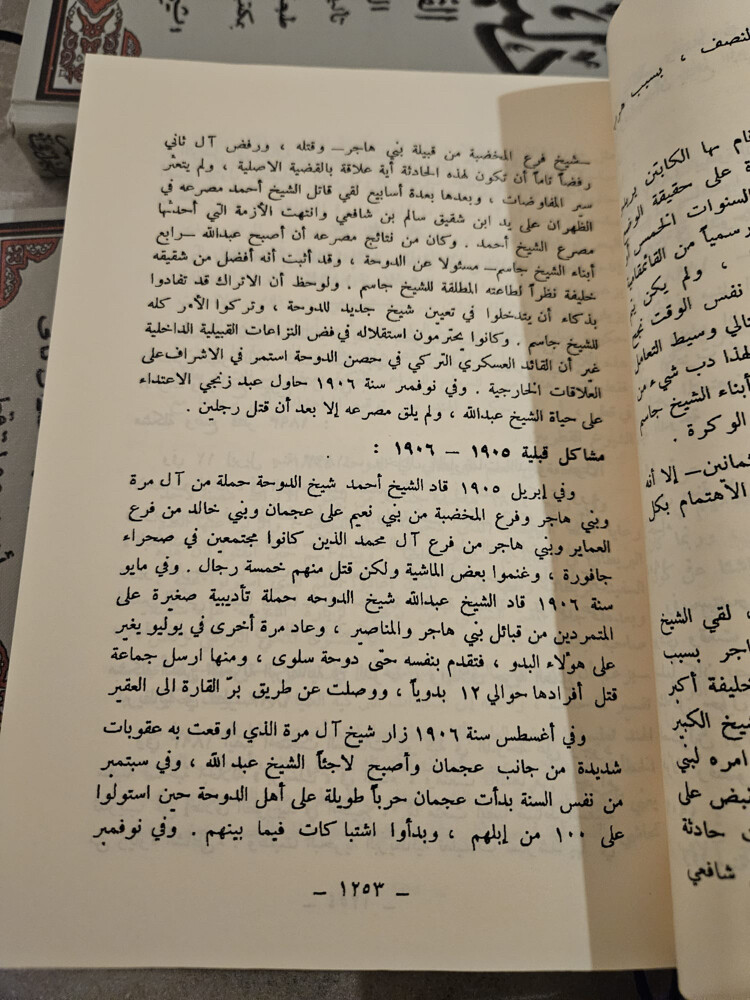 ـ شيخ فرع المخضبة من قبيلة بني هاجر ـ وقتله ، ورفض آل ثاني
رفضاً تاماً أن تكون لهذه الحادثة أية علاقة بالقضية الاصلية ، ولم يتعثر
سير المفاوضات ، وبعدها بعدة أسابيع لقي قاتل الشيخ أحمد مصرعه في
الظهران على يد ابن شقيق سالم بن شافعي وانتهت الأزمة التي أحدثها
مصرع الشيخ أحمد . وكان من نتائج مصرعه أن أصبح عبدالله ـ رابع
أبناء الشيخ جاسم ـ مسئولا عن الدوحة ، وقد أثبت أنه أفضل من شقيقه
خليفة نظراً لطاعته المطلقة للشيخ جاسم . ولوحظ أن الاتراك قد تفادوا
بذكاء أن يتدخلوا في تعيين شيخ جديد للدوحة ، وتركوا الأمر كله
للشيخ جاسم . وكانوا يحترمون استقلاله في فض النزاعات القبيلية الداخلية
غير أن القائد العسكري التركي في حصن الدوحة استمر في الاشراف على
العلاقات الخارجية . وفي نوفمبر سنة ١٩٠٦ حاول عبد زنجي الاعتداء
على حياة الشيخ عبدالله ، ولم يلق مصرعه إلا بعد أن قتل رجلين .
مشاكل قبلية ١٩٠٥ – ١٩٠٦ :
وفي إبريل ١٩٠٥ قاد الشيخ أحمد شيخ الدوحة حملة من آل مرة
وبني هاجر وفرع المخضبة من بني نعيم على عجمان وبني خالد من فرع
العماير وبني هاجر من فرع آل محمد الذين كانوا مجتمعين في صحراء
جافورة ، وغنموا بعض الماشية ولكن قتل منهم خمسة رجال . وفي مايو
سنة ١٩٠٦ قاد الشيخ عبدالله شيخ الدوحه حملة تأديبية صغيرة على
المتمردين من قبائل بني هاجر والمناصير ، وعاد مرة أخرى في يوليو يغير
على هؤلاء البدو ، فتقدم بنفسه حتى دوحة سلوى ، ومنها ارسل جماعة
قتل أفرادها حوالي ١٢ بدوياً ، ووصلت عن طريق برّ القارة الى العقير
وفي أغسطس سنة ١٩٠٦ زار شيخ آل مرة الذي اوقعت به عقوبات
شديدة من جانب عجمان وأصبح لاجئاً الشيخ عبد الله ، وفي سبتمبر
من نفس السنة بدأت عجمان حرباً طويلة على أهل الدوحة حين استولوا
على ١٠٠ من إبلهم ، وبدأوا اشتباكات فيما بينهم . وفي نوفمبر
– ١٢٥٣ –
لنصف ، بسبب
ام بها الكابتن
ة على حقيقة
السنوات الخمس
رسمياً من
، ولم يكن
نفس الوقت
تالي وسيط التعامل
لهذا دب شيء من
أبناء الشيخ جاسم
الوكرة .
ثمانين ـ إلا أنه
الاهتمام بكل
، لقي الشيخ
هاجر بسبب
خليفة أكبر
شيخ الكبير
امره لبني
قبض على
ن حادثة
شافعي